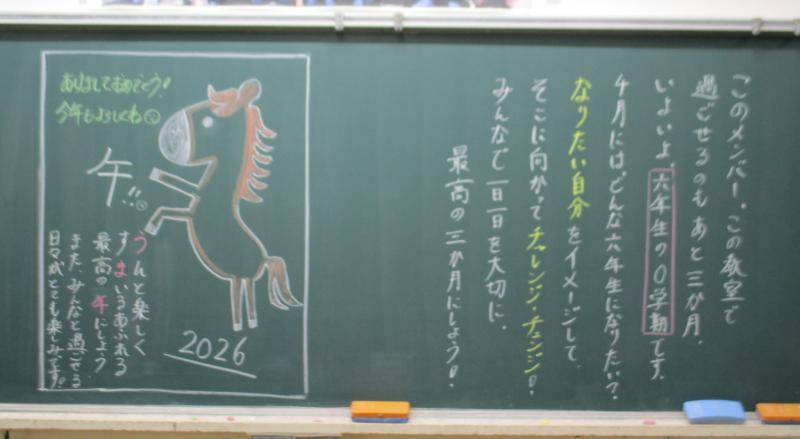 このメンバー、この教室で
過ごせるのもあと三か月。
いよいよ、六年生の0学期です。
4月には、どんな六年生になりたい？
なりたい自分をイメージして、
そこに向かってチャレンジ・チェンジ！
みんなで一日一日を大切に、
最高の三か月にしょう！
あけましておめでとう！
今年もよろしくね
午!!
うんと楽しく
すまいるあふれる
最高の年にしよう
また、みんなと過ごせる
日々がとても楽しみです!!
2026